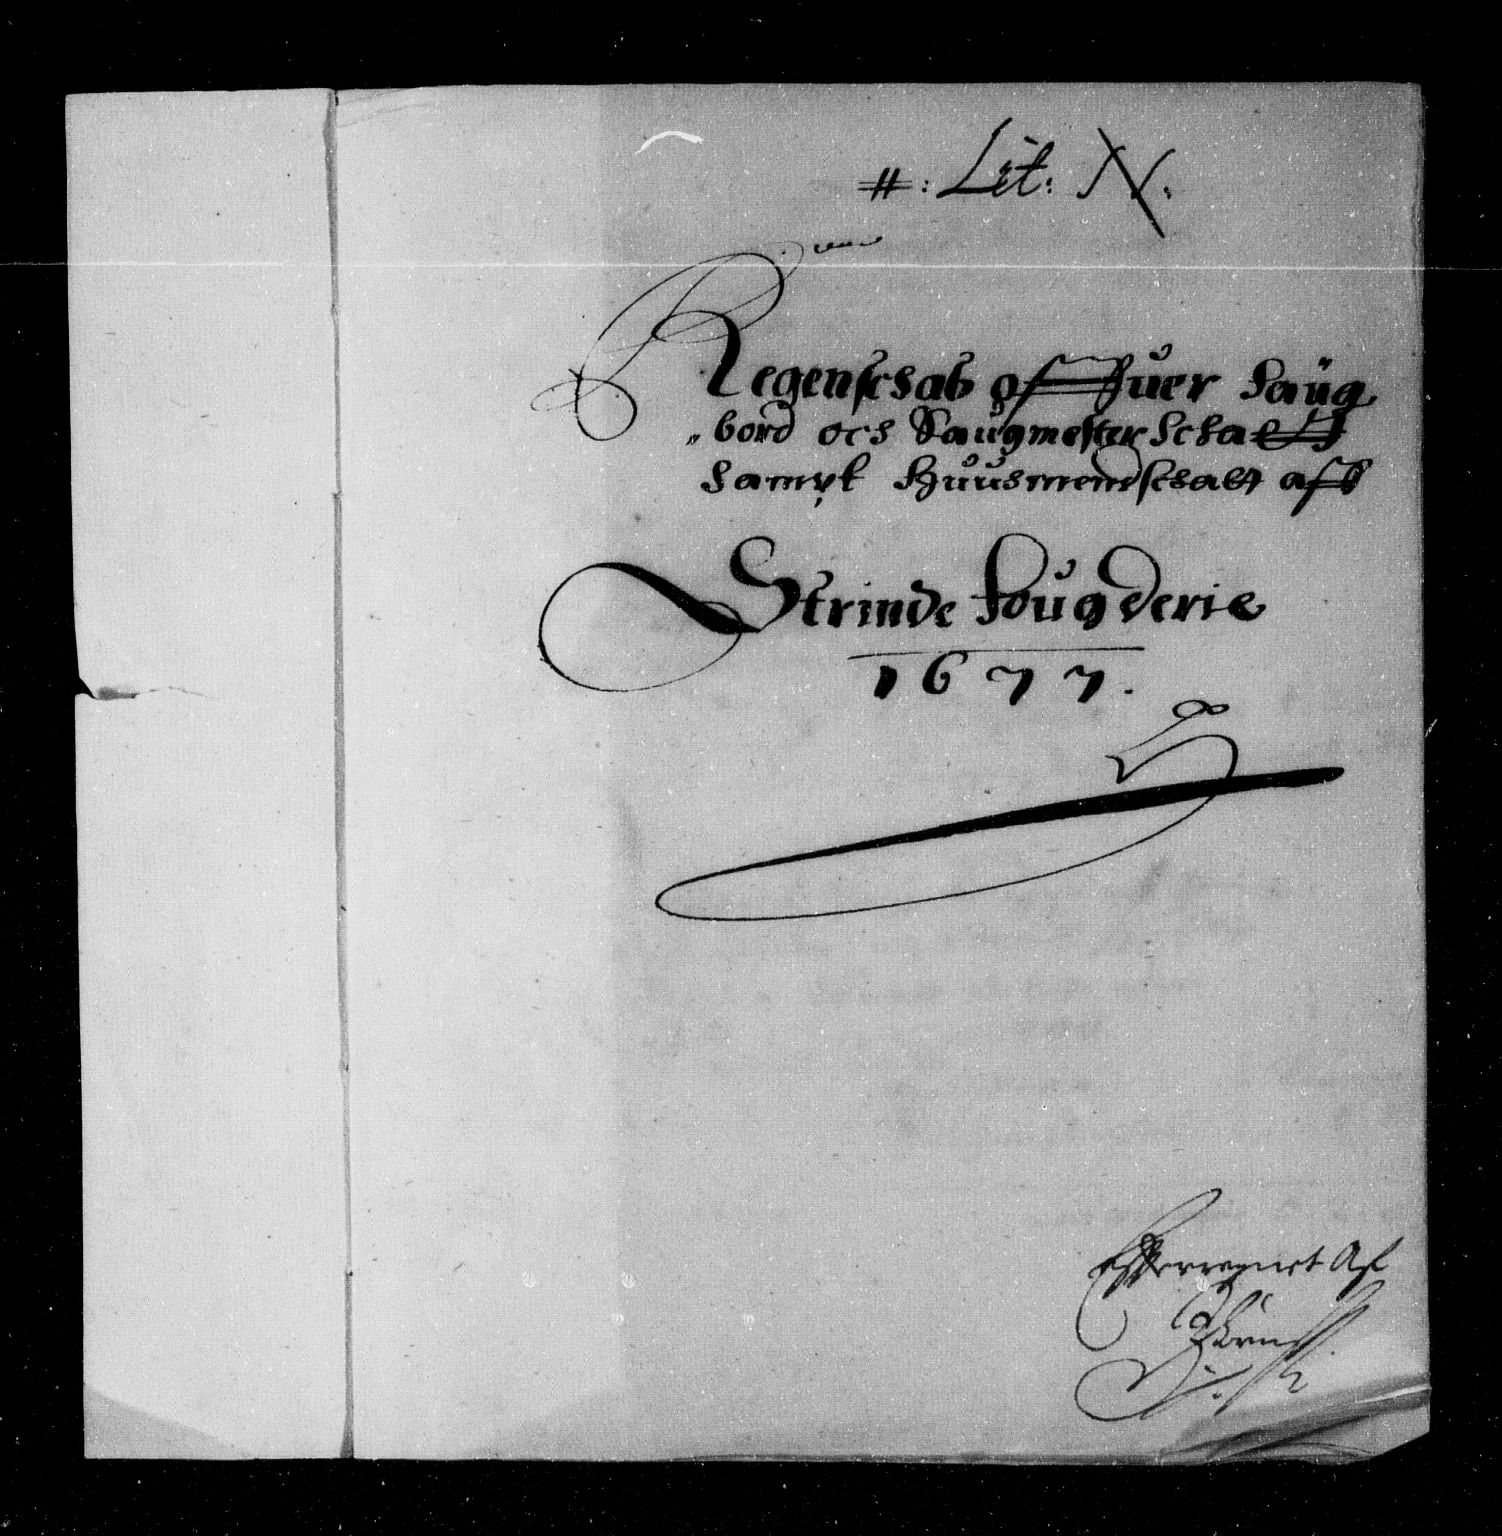 #: Lit: N.
Regenschab offuer Saüg
„bord och Saugmester Schatt
Sampt Huusmendschatt aff
Strinde fougderie
1677.
Efterregnet Af